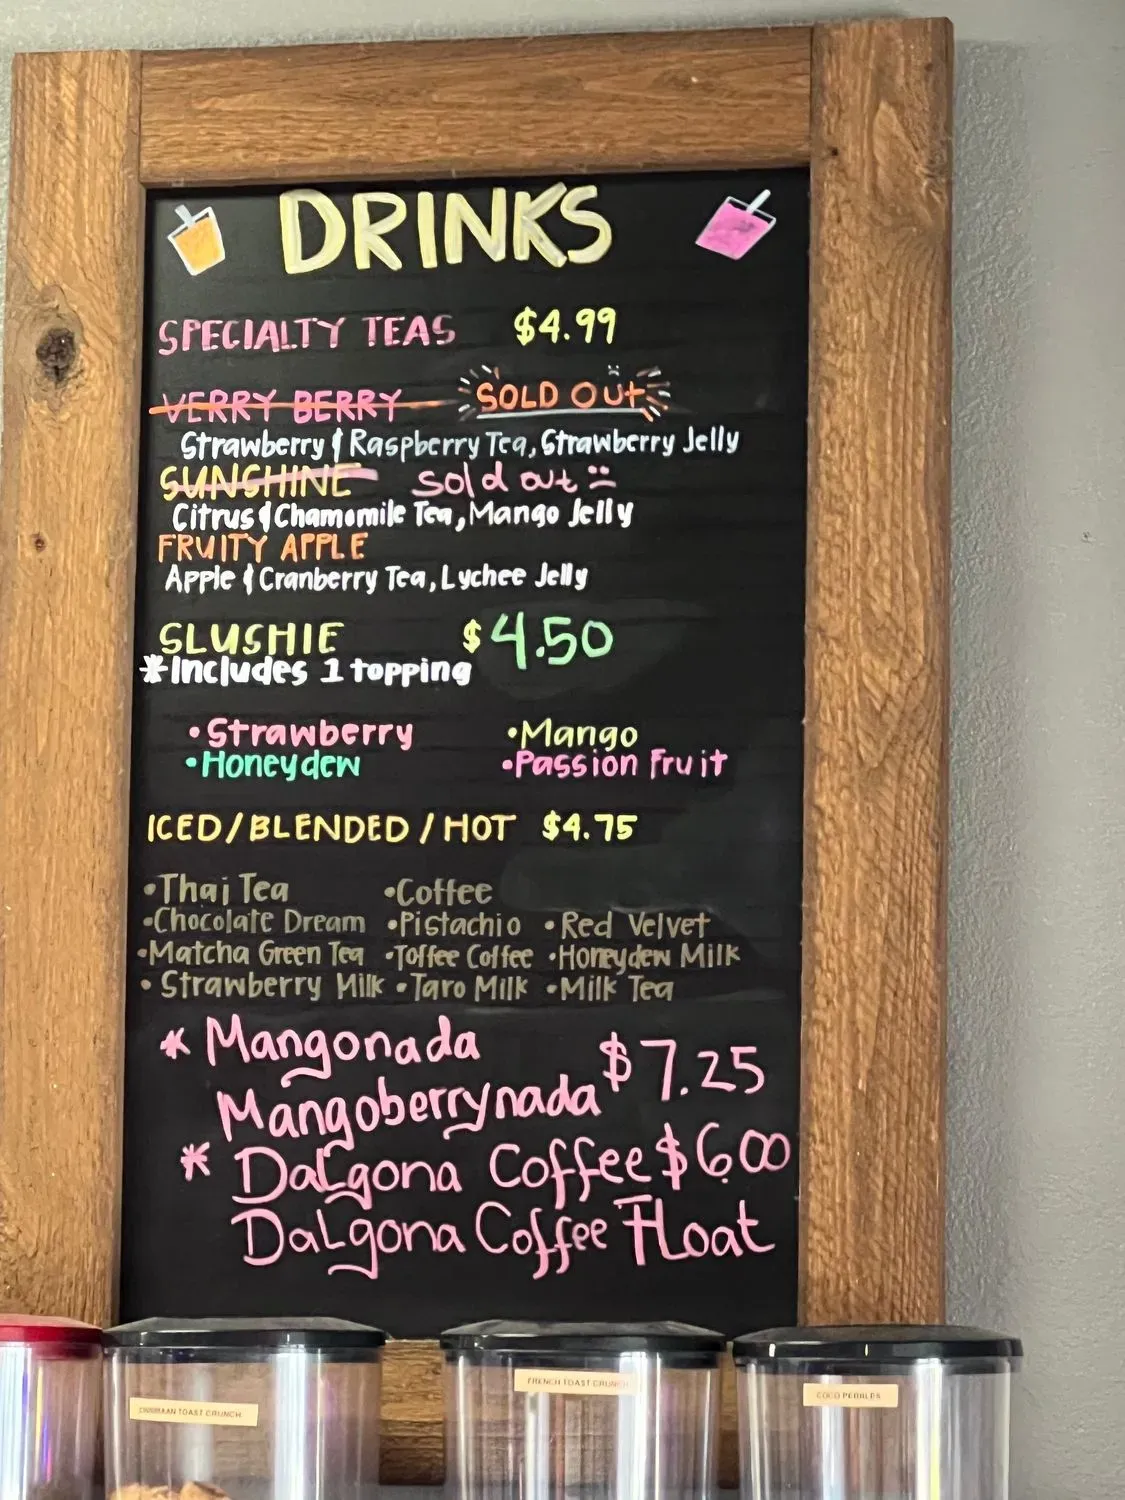 DRINKS
SPECIALTY TEAS $4.99
VERRY BERRY SOLD OUT
Strawberry & Raspberry Tea, Strawberry Jelly
SUNSHINE Sold out
Citrus & Chamomile Tea, Mango Jelly
FRUITY APPLE
Apple & Cranberry Tea, Lychee Jelly
SLUSHIE $4.50
*Includes 1 topping
•Strawberry •Mango
•Honeydew •Passion Fruit
ICED/BLENDED/HOT $4.75
•Thai Tea •Coffee
•Chocolate Dream •Pistachio •Red Velvet
•Matcha Green Tea •Toffee Coffee •Honeydew Milk
•Strawberry Milk •Taro Milk •Milk Tea
* Mangonada $7.25
Mangoberrynada
* Dalgona Coffee $6.00
Dalgona Coffee Float
FRENCH TOAST CRUNCH
COCO PEBBLES
TOAST CRUNCH